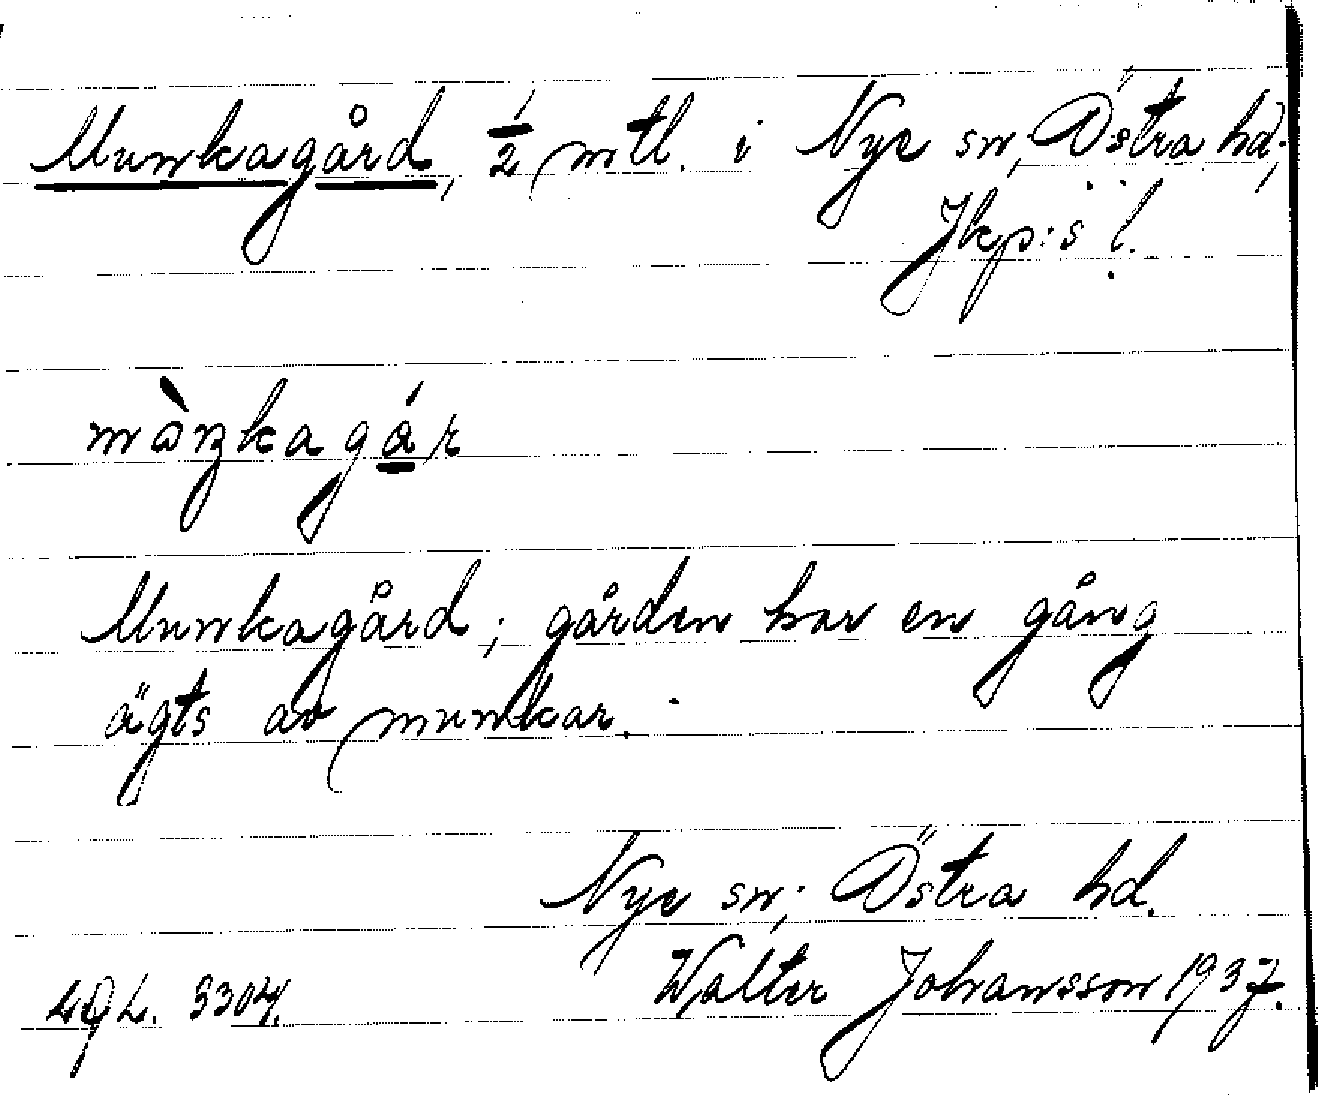 Munkagård, 1/2 mtl. i Nye sn; Östra hd;
Jkp:s l.
Munkagård; gården har en gång
ägts av munkar.
Nye sn; Östra hd.
Walter Johansson 1937.
3304.